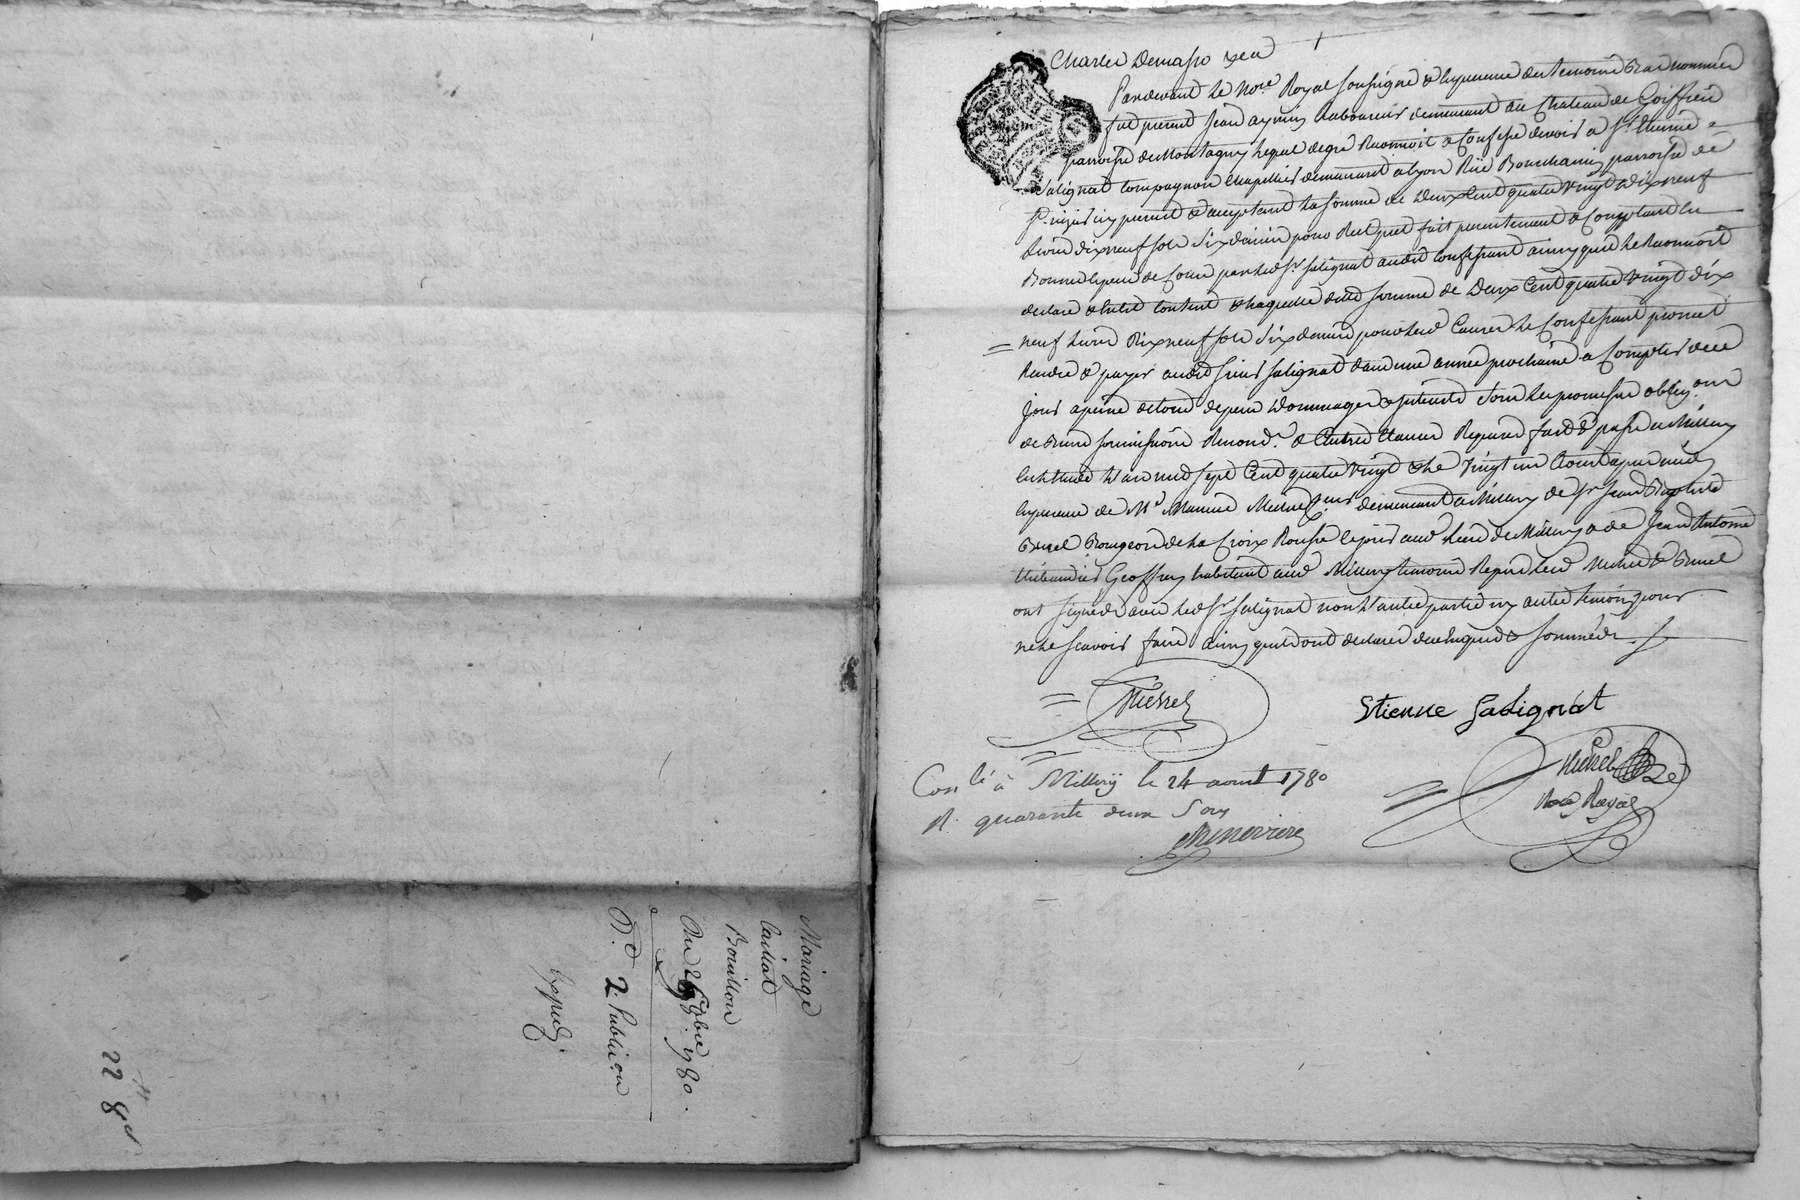 Mariage
Bouillon
Du 26 7bre 1780.
2. Publicon
22
Pardevant le Nore. Royal soussigné & en presence des temoins bas nommés
fut present Jean aymin laboureur demeurant au Chateau de Goiffieu
parroisse de Montagny lequel de gré Reconnoit & Confesse devoir a Sr. Etienne
Salignat Compagnon Chapellier demeurant a lyon Rüe Bouchanin parroisse de
St. nizier icy present & acceptant la somme de Deux Cent quatre Vingt Dix neuf
livres dix neuf sols Six deniers pour Reel pret fait presentement & Comptant en
Bonnes especes de Cours par led. Sr. Salignat audit Confessant ainsy qu'il le Reconnoit
declare & s'en tient Content & laquelle dite somme de Deux Cent quatre Vingt dix
neuf livres Dix neuf sols Six deniers pour les Causes le Confessant promet
Rendre & payer audit Sieur Salignat dans une année prochaine a Compter de ce
jour a peine de tous depens Dommages & interets Sous les promesses oblig.ons
de Biens soumissions Renond. & Autres Clauses Requises fait & passé a Millery
en Etude l'an mil sept Cent quatre Vingt & le Vingt un Aoust apres midy
en presence de Me demeurant a Millery de Sr. Jean Baptiste
Brunel Bourgeois de la Croix Rousse de present aud. lieu de Millery & de Jean Antoine
Thibaudier Geoffray habitant aud. Millery temoins Requis led. & Brunel
ont signé avec led. Sr. Salignat non l'autre partie ny autre temoin pour
ne le Scavoir faire ainsy qu'ils ont declaré de ce Enquis & Sommés
Etienne Salignat
Conlé à Millery le 24 aoust 1780
R. quarante deux Sous
Nore Royal